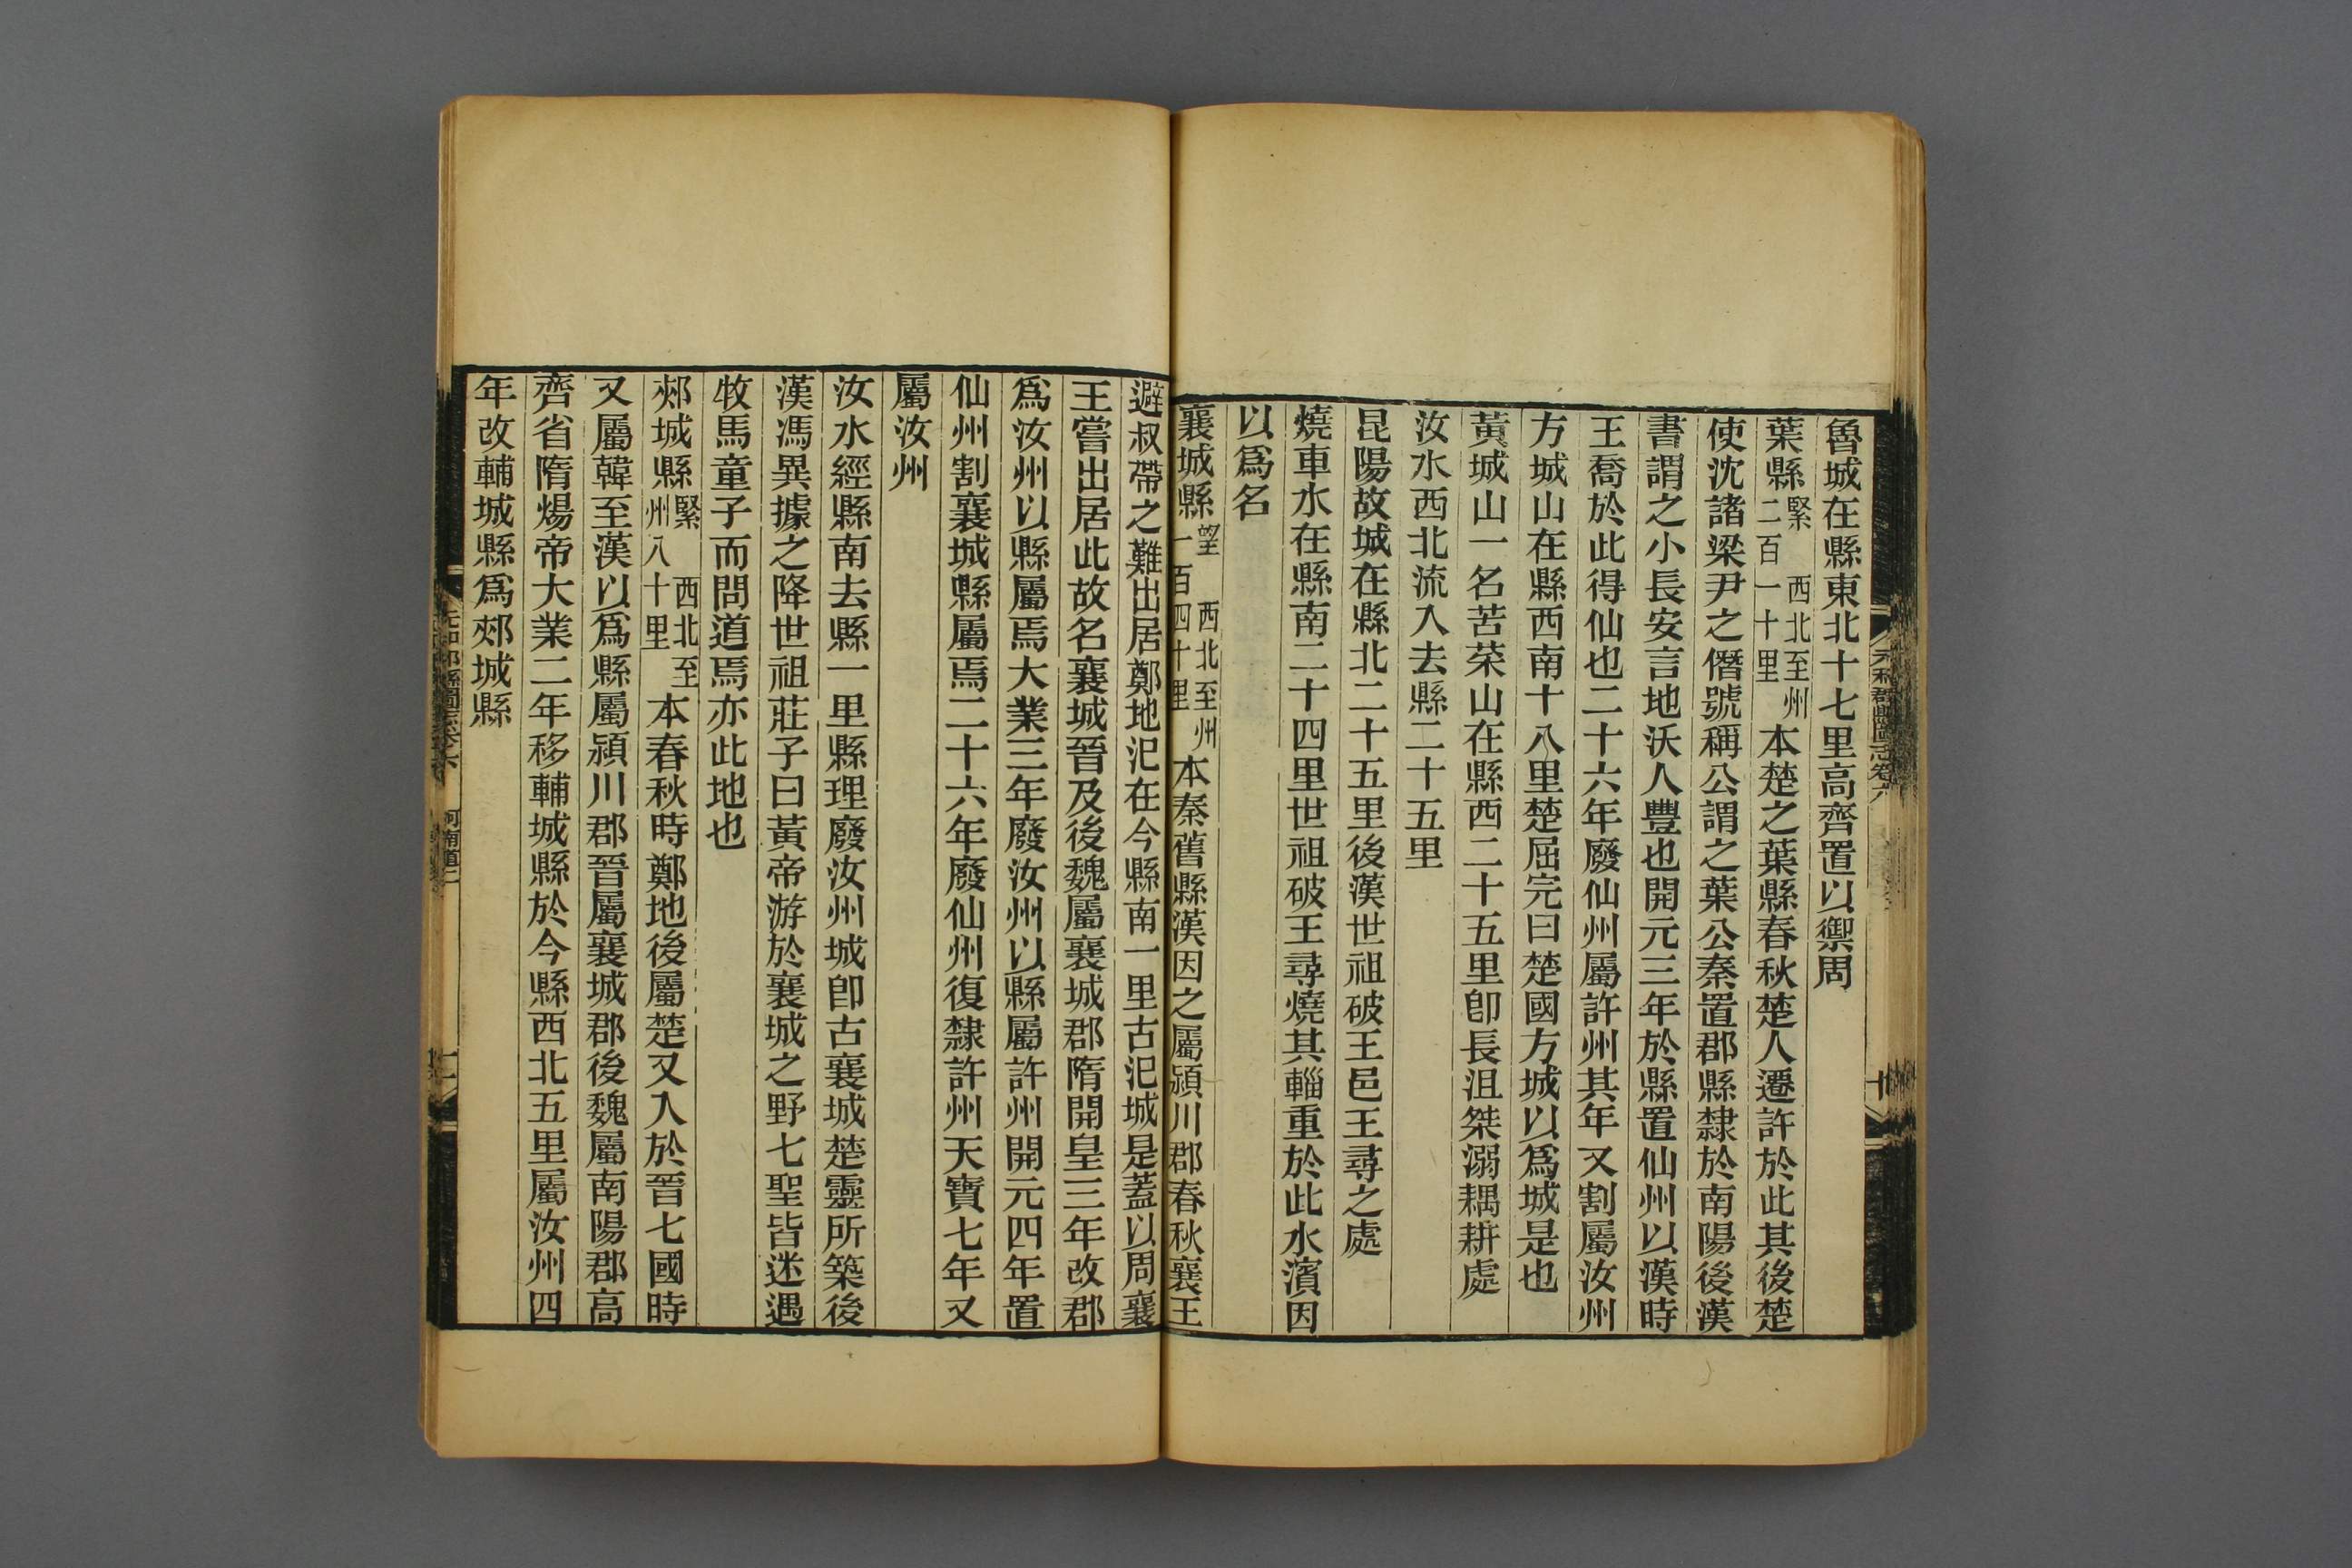 魯城在縣東北十七里高齊置以禦周
葉縣緊 西北至州二百一十里本楚之葉縣春秋楚人遷許於此其後楚
使沈諸梁尹之僭號稱公謂之葉公秦置郡縣隸於南陽後漢
書謂之小長安言地沃人豐也開元三年於縣置仙州以漢時
王喬於此得仙也二十六年廢仙州屬許州其年又割屬汝州
方城山在縣西南十八里楚屈完曰楚國方城以爲城是也
黃城山一名苦菜山在縣西二十五里卽長沮桀溺耦耕處
汝水西北流入去縣二十五里
昆陽故城在縣北二十五里後漢世祖破王邑王尋之處
燒車水在縣南二十四里世祖破王尋燒其輜重於此水濱因
以爲名
襄城縣望 西北至州一百四十里本秦舊縣漢因之屬潁川郡春秋襄王
避叔帶之難出居鄭地汜在今縣南一里古汜城是蓋以周襄
王嘗出居此故名襄城晉及後魏屬襄城郡隋開皇三年改郡
爲汝州以縣屬焉大業三年廢汝州以縣屬許州開元四年置
仙州割襄城縣屬焉二十六年廢仙州復隸許州天寶七年又
屬汝州
汝水經縣南去縣一里縣理廢汝州城卽古襄城楚靈所築後
漢馮異據之降世祖莊子曰黃帝游於襄城之野七聖皆迷遇
牧馬童子而問道焉亦此地也
郟城縣緊 西北至州八十里本春秋時鄭地後屬楚又入於晉七國時
又屬韓至漢以爲縣屬潁川郡晉屬襄城郡後魏屬南陽郡高
齊省隋煬帝大業二年移輔城縣於今縣西北五里屬汝州四
年改輔城縣爲郟城縣